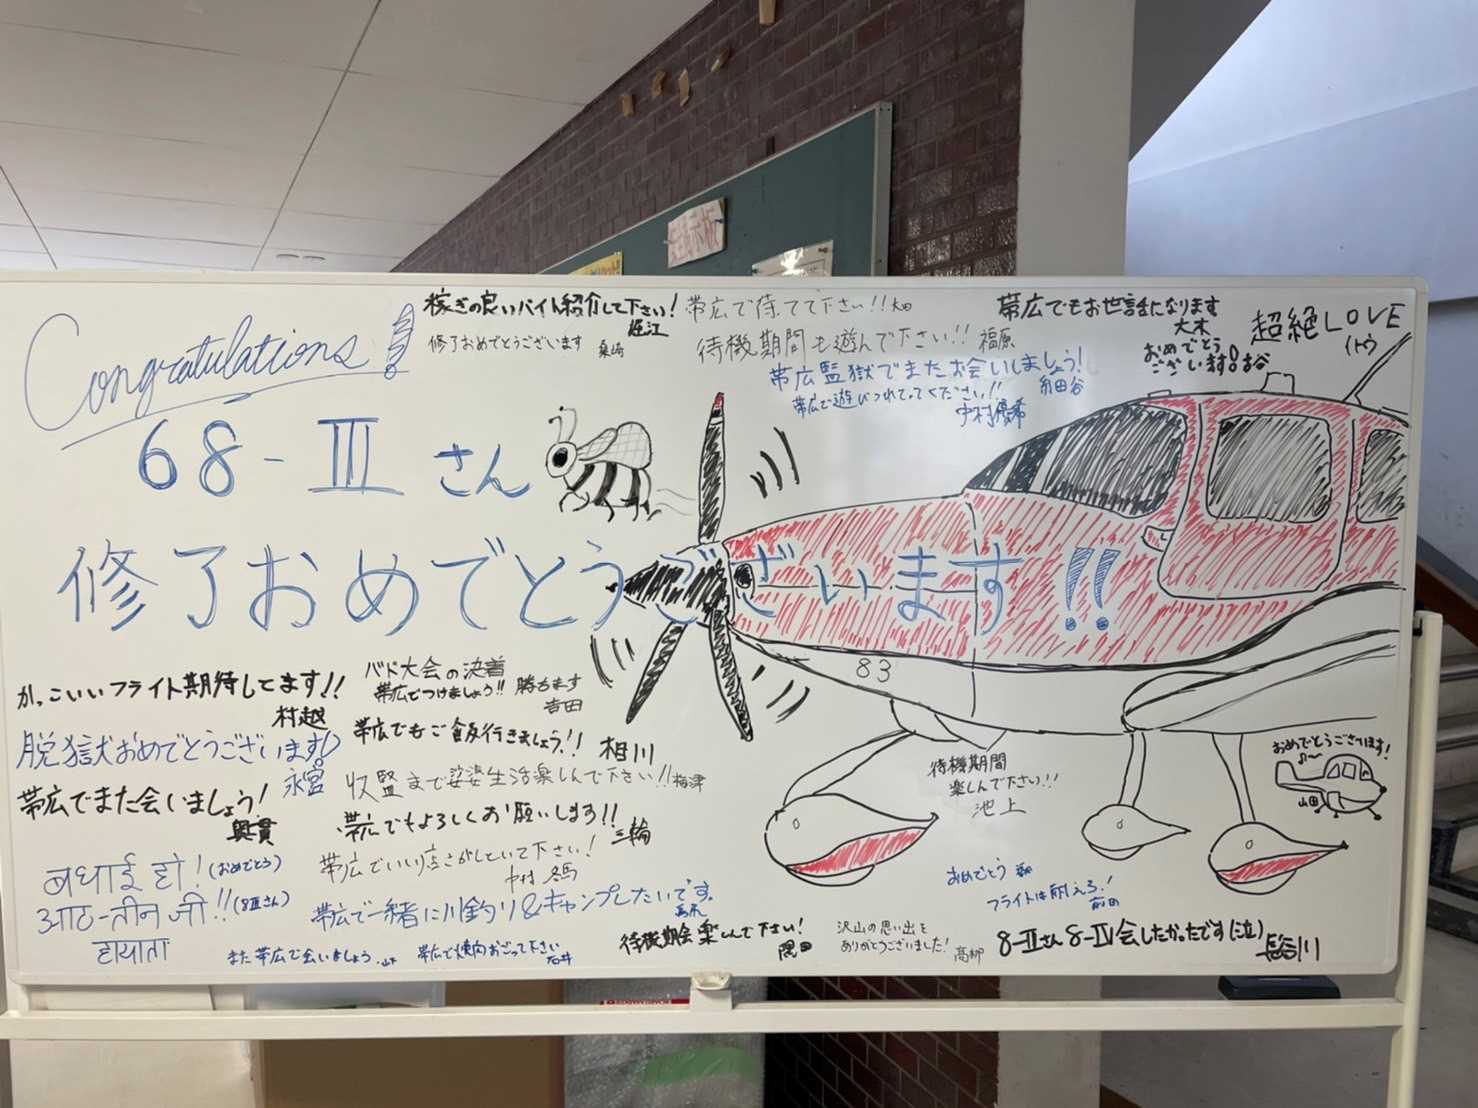 Congratulations!
68-Ⅲ さん
修了おめでとうございます!!
稼ぎの良いバイト紹介して下さい!
堀江
修了おめでとうございます
帯広で待てて下さい!!
待機期間も遊んで下さい!! 福原
帯広監獄でまたお会いしましょう!
帯広で遊びつれてってください!!
中村優希
帯広でもお世話になります
大木
おめでとう
ございます!
超絶LOVE
イトウ
83
かっこいいフライト期待してます!!
村越
バド大会の決着
帯広でつけましょう!! 勝ちます
吉田
脱獄おめでとうございます!
永宮
帯広でもご飯行きましょう!!
相川
帯広でまた会いましょう!
奥貫
収監まで娑婆生活楽しんで下さい!! 梅津
帯広でもよろしくお願いします!!
三輪
帯広でいい店さがしといて下さい!
中村
बधाई हो! (おめでとう)
आठ-तीन जी!! (8Ⅲさん)
हायाता
帯広で一緒に川釣り&キャンプしたいです。
また帯広で会いましょう. 山下
帯広で焼肉おごって下さい
石井
待機期間
楽しんで下さい!!
池上
おめでとうございます!
山田
おめでとう
フライトは耐えろ!
前田
待機期会楽しんで下さい!
隈田
沢山の思い出を
ありがとうございました!
高柳
8-Ⅲさん 8-Ⅳ会したかったです(泣)
長谷川